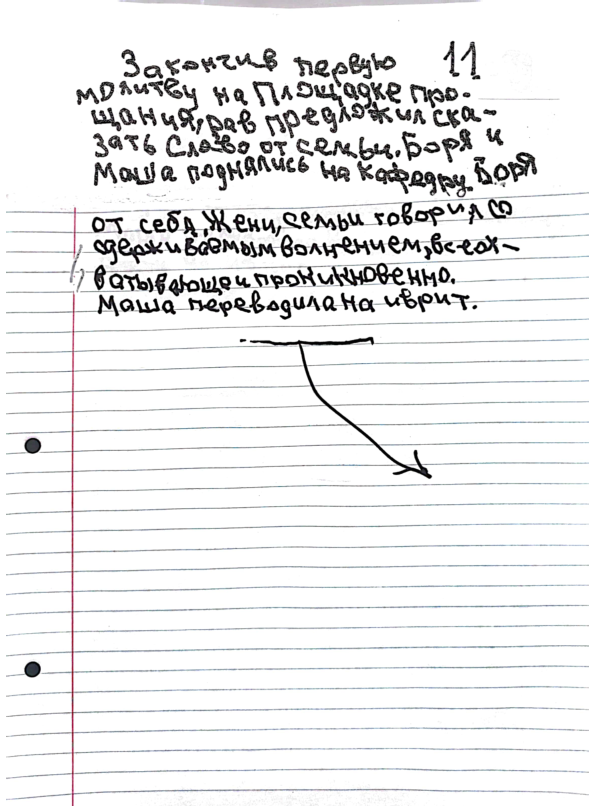 Закончив первую 11
молитву на Площадке про-
щания, рав предложил ска-
зать Слово от семьи. Боря и
Маша поднялись на кафедру. Боря
от себя, Жени, семьи говорил со
сдерживаемым волнением, всеох-
ватывающе и проникновенно.
Маша переводила на иврит.